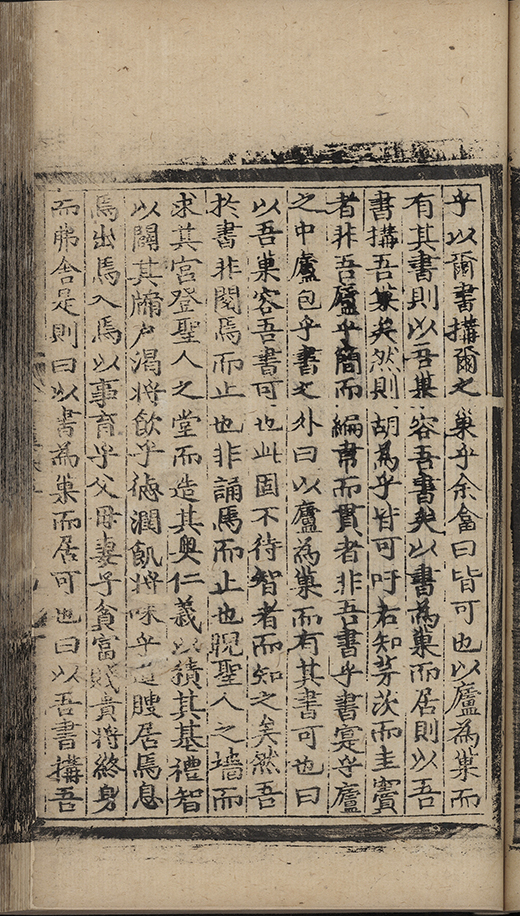 乎以爾書搆爾之巢乎余僉曰皆可也以廬為巢而
有其書則以吾巢容吾書矣以書為巢而居則以吾
書搆吾巢矣然則胡為乎皆可吁若知茅茨而圭竇
者非吾廬乎簡而編韋而貫者非吾書乎書寔乎廬
之中廬包乎書之外曰以廬為巢而有其書可也曰
以吾巢容吾書可也此固不待智者而知之矣然吾
扵書非閱焉而止也非誦焉而止也覩聖人之墻而
求其宮登聖人之堂而造其奧仁義以積其基禮智
以闢其牖户渴将飲乎德潤飢将味乎道腴居焉息
焉出焉入焉以事育乎父母妻子貧富賤貴将終身
而弗舍是則曰以書為巢而居可也曰以吾書搆吾